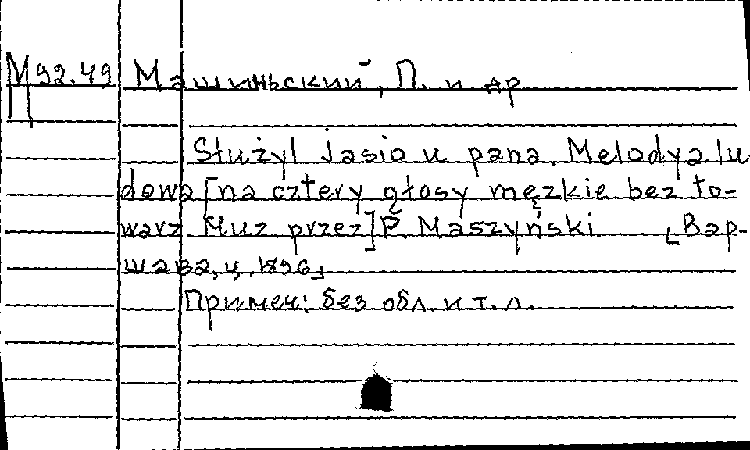 М 92.49 Машиньский, П. и др
П
Służył Jasio u pana. Melodya lu
dowa [na cztery głosy męzkie bez to-
warz. Muz przez] P. Maszyński [Вар-
шава, ц. 1896]
Примеч: без обл. и т. л.